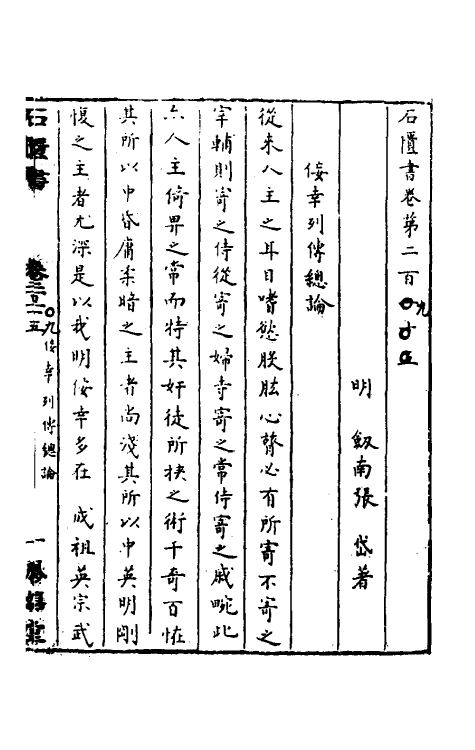 石匱書卷第二百〇九
明 劔南張 岱著
佞幸列傳總論
從來人主之耳目嗜慾股肱心膂必有所寄不寄之
宰輔則寄之侍從寄之婦寺寄之常侍寄之戚畹此
亦人主倚畀之常而特其奸徒所挾之術千奇百怪
其所以中昏庸柔暗之主者尚淺其所以中英明剛
愎之主者尤深是以我明佞幸多在 成祖英宗武
石匱書 卷二百〇九 佞幸列傳總論 一 鳳嬉堂